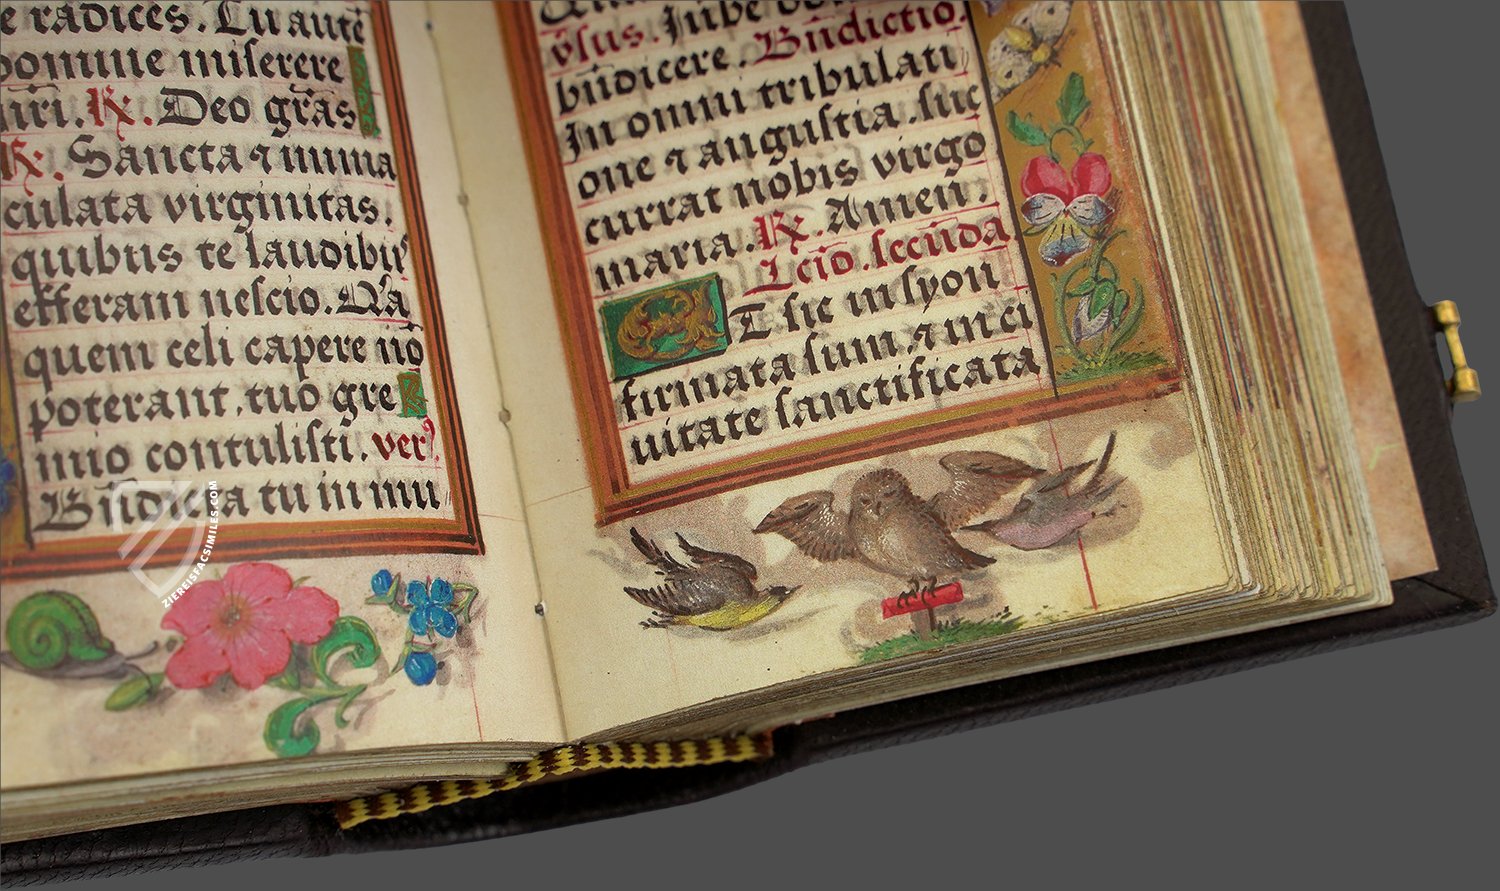 e radices. Tu autē
domine miserere
nr̄i. ℟. Deo grās
℟. Sancta ⁊ imma
culata virginitas.
quibus te laudibus
efferam nescio. Q̄a
quem celi capere nō
poterant, tuo gre
mio contulisti. vers⁹.
Bn̄dicta tu in mu
v̄sus. Jube do
bn̄dicere. Bn̄dictio.
In omni tribulati
one ⁊ angustia. suc
currat nobis virgo
maria. ℟. Amen.
Lcīo. secūda
ET sic in syon
firmata sum. ⁊ in ci
uitate sanctificata
ZIEREISFACSIMILES.COM